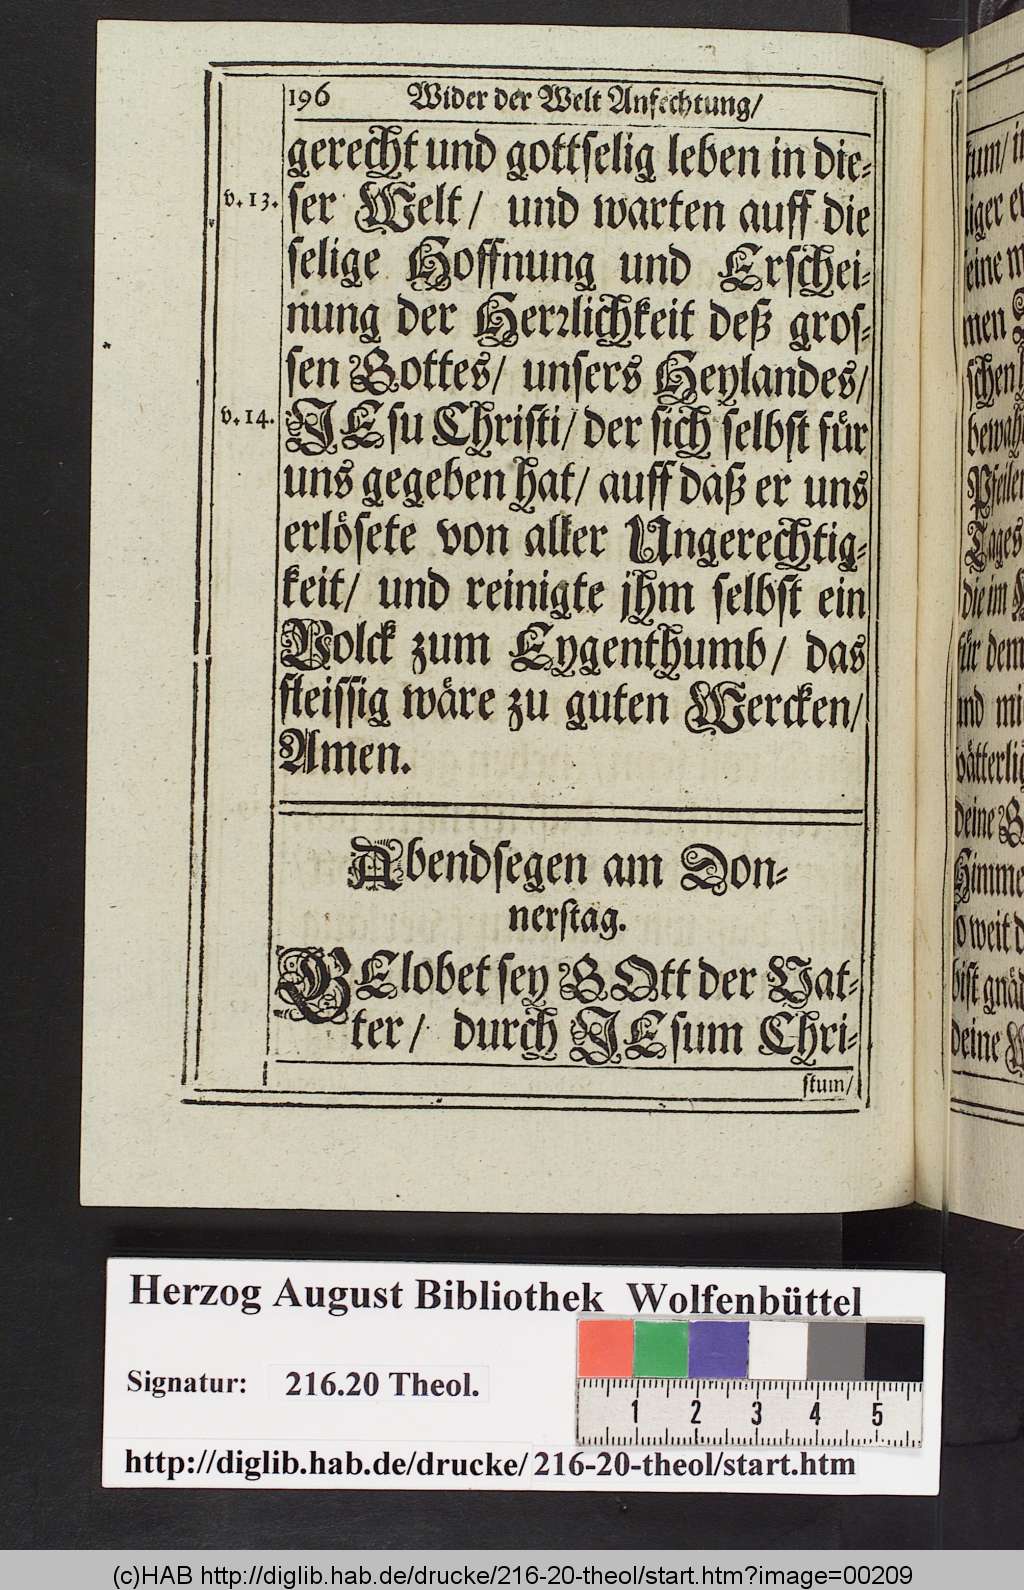 196 Wider der Welt Anfechtung/
gerecht und gottselig leben in die-
v. 13. ser Welt/ und warten auff die
selige Hoffnung und Erschei-
nung der Herrlichkeit deß gros-
sen Gottes/ unsers Heylandes/
v. 14. JEsu Christi/ der sich selbst für
uns gegeben hat/ auff daß er uns
erlösete von aller Ungerechtig-
keit/ und reinigte jhm selbst ein
Volck zum Eygenthumb/ das
fleissig wäre zu guten Wercken/
Amen.
Abendsegen am Don-
nerstag.
GElobet sey GOtt der Vat-
ter/ durch JEsum Chri-
stum/
tum/
eine
men
schen
bewah
Pfeilen
Tages
die im
für dem
und mi
deine
Himme
so weit d
bist gnäd
deine
Herzog August Bibliothek Wolfenbüttel
Signatur: 216.20 Theol.
1 2 3 4 5
http://diglib.hab.de/drucke/216-20-theol/start.htm
(c)HAB http://diglib.hab.de/drucke/216-20-theol/start.htm?image=00209